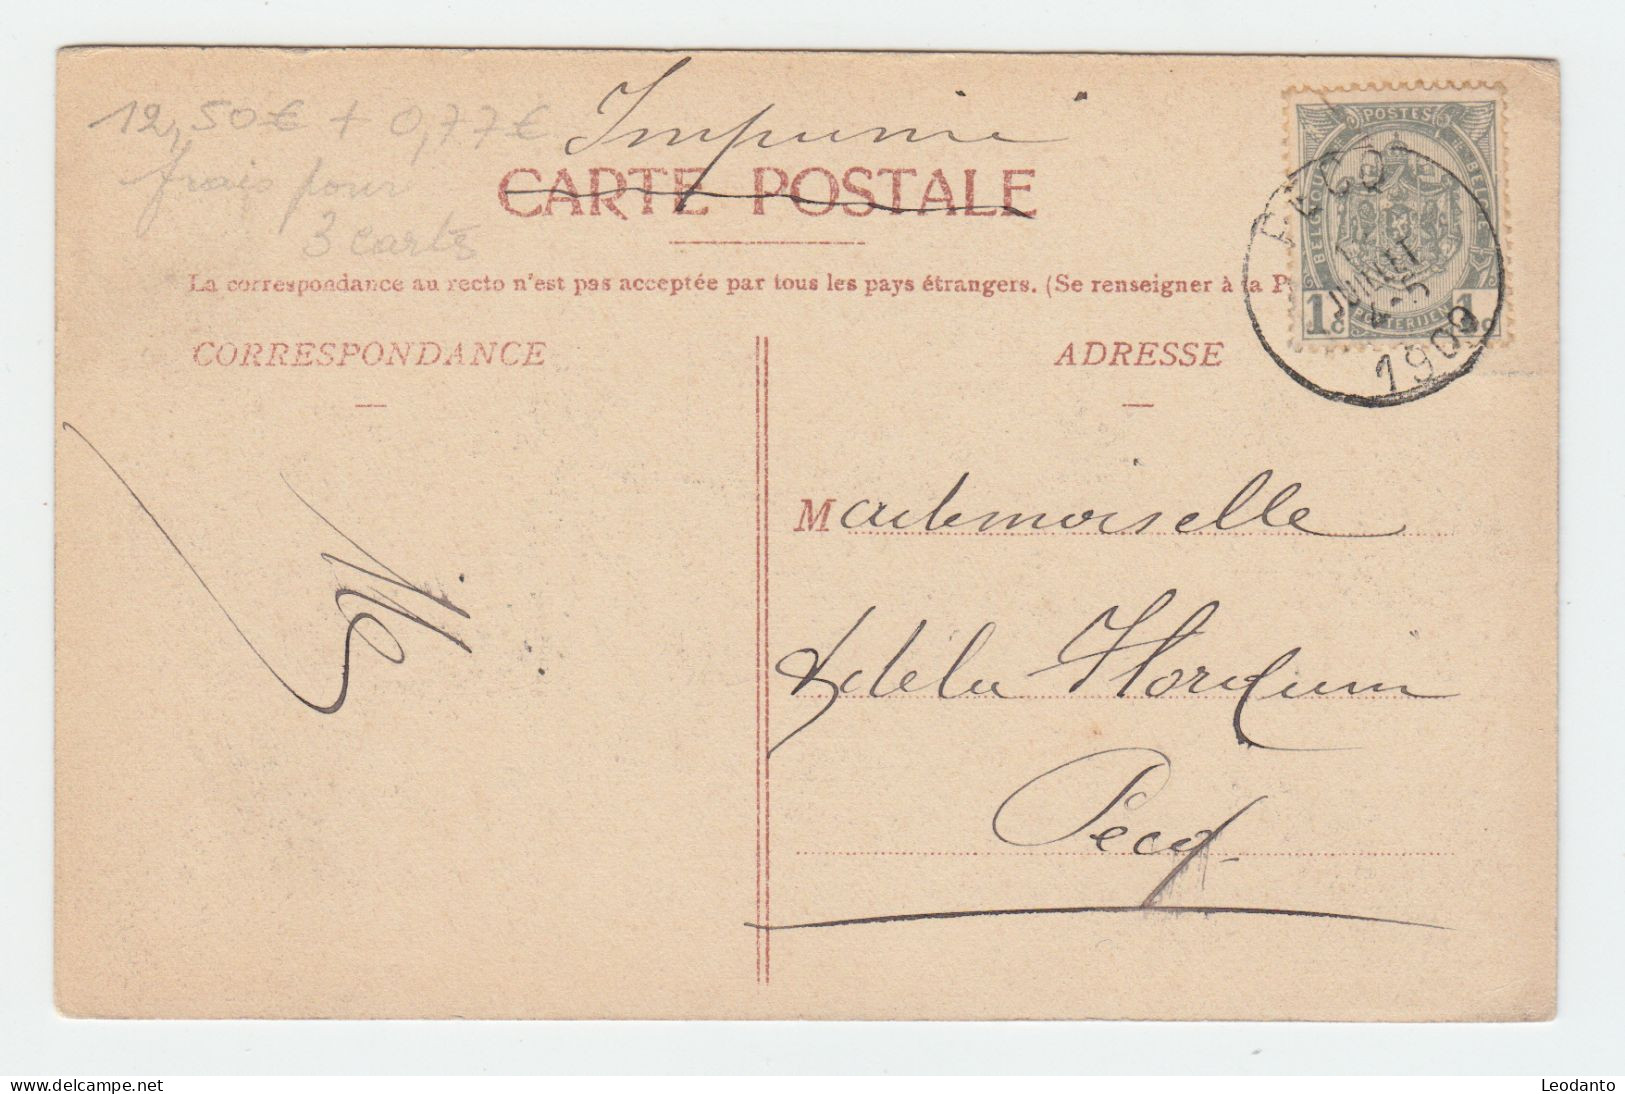 12,50€ + 0,77€
frais pour
3 carte
Imprimé
CARTE POSTALE
La correspondance au recto n'est pas acceptée par tous les pays étrangers. (Se renseigner à la P
CORRESPONDANCE
ADRESSE
POSTES
BELGIQUE
BELGIË
POSTERIJEN
1c
1c
PECQ
JUILLET
1909
Mademoiselle
de la
Pecq
delcampe.net
Leodanto